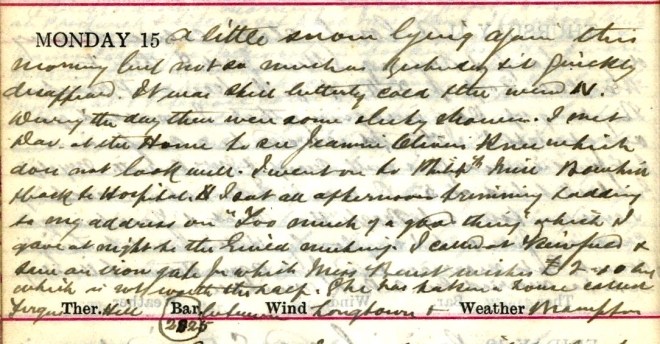 MONDAY 15 a little snow lying again this
morning but not so much as yesterday & it quickly
disappeared. It was still bitterly cold & the wind N.
During the day there were some sleety showers. I met
Dav. at the Home to see Jeannie Knee which
does not look well. I went on to Miss
& back to Hospital. I sat all afternoon & adding
to my address on "Too much of a good thing" which I
gave at night to the Guild meeting. I called at &
saw an iron gate for which Miss wishes £2-10 but
which is not worth the half. She has taken a house called
Hill between Longtown & Brampton
Ther. Bar. Wind Weather